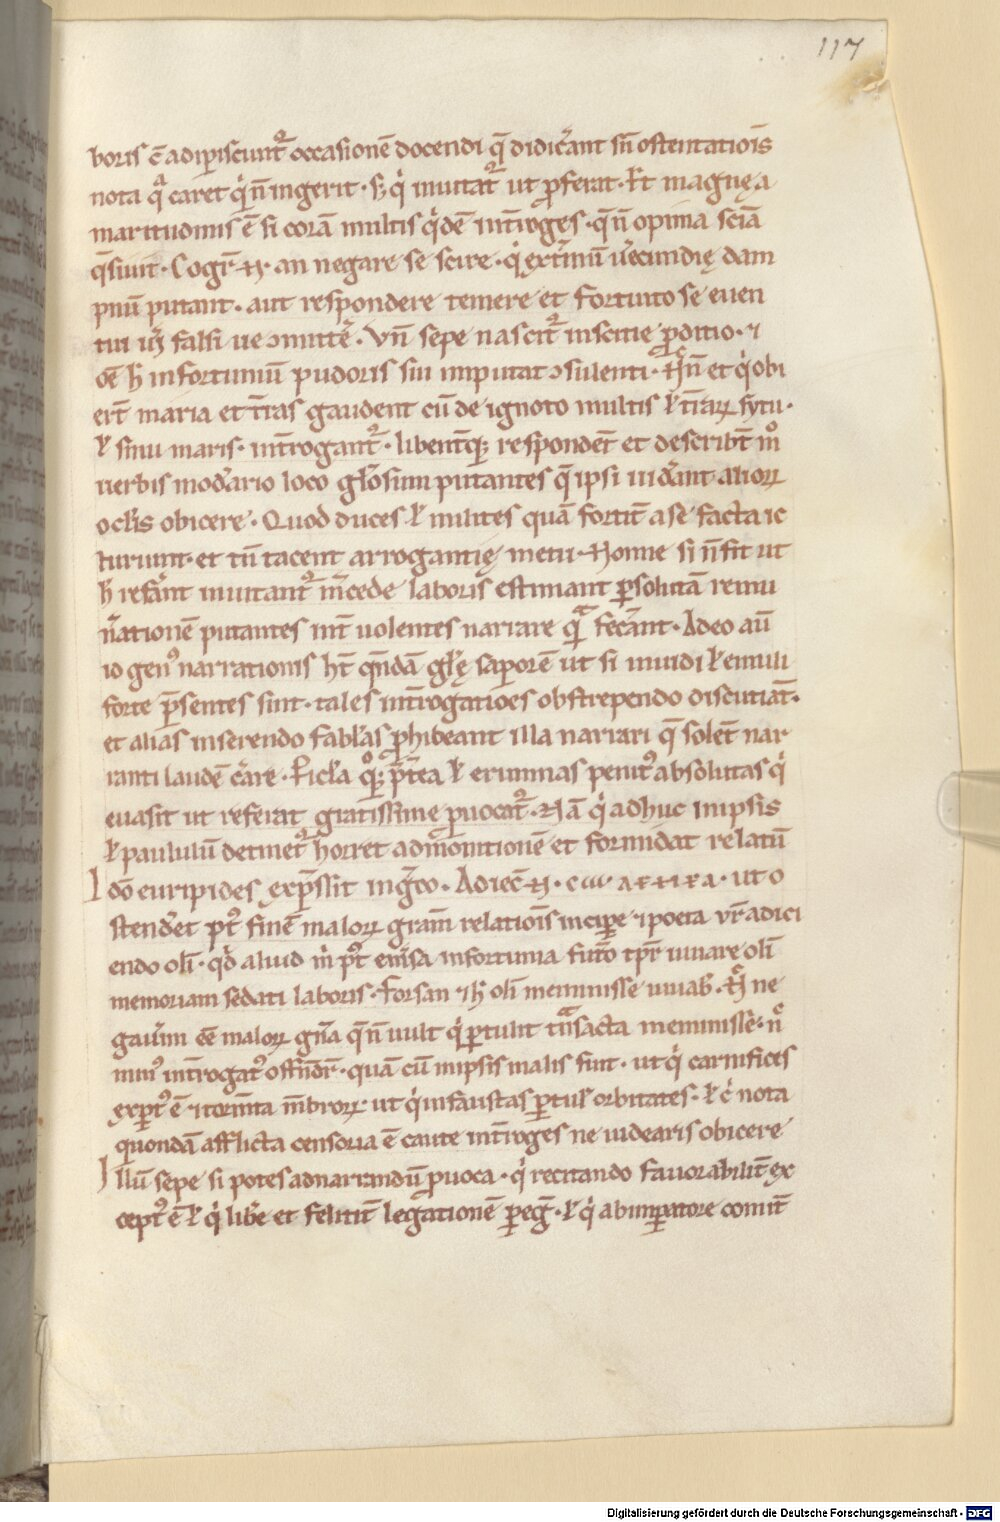 117
boris ē adipiscunt᷑ occasionē docendi q̄ didic̄ant sn̄ ostentatiōis
nota q̄ caret q̇ n̄ ingerit · s; q̇ inuitat᷑ ut ꝓferat · Et magnę a
maritudinis ē si corā multis q̇dē int̄roges · q̄ n̄ opima sciā
q̄siuit · Cogit᷑ · an negare se scire · q̇ ext̄mū uecundię dam
pnū putant · aut respondere temere et fortuito se euen
tui uł falsi ue ɔmittē · Vn̄ sepe nascit᷑ inscitie ꝓditio · ⁊
oē h̄ infortuniū pudoris sui imputat ɔsulenti · et q̇ obi
ert̄ maria et t̄ras gaudent cū de ignoto multis ł t̄raꝝ sytu ·
ł sinu maris · int̄rogant᷑ · libent̄q; respondēt et describt̄ m°
uerbis mod̄ario loco gl̄osum putantes q̄ ipsi uid̄ant alioꝝ
oclis obicere · Quod duces ł milites quā fortit̄ a se facta ic
turiunt · et tn̄ tacent arrogantię metu · Nonne si n̄ fit ut
h̄ refānt inuitant᷑ m̄cede laboris estimant ꝑsolutā remu
n̄ationē putantes int̄ uolentes narrare q̄ fec̄ant · Adeo aū
io gen᷒ narrationis ht̄ qn̄dā gl̄ę saporē ut si inuidi ł emuli
forte p̄sentes sint · tales int̄rogatiōes obstrependo discutiāt ·
et alias inserendo fabl̄as ꝓhibeant illa narrari q̄ solēt nar
ranti laudē c̄are · Picl̄a q°q; p̄t̄ea ł erumnas penit᷒ absolutas q̇
euasit ut referat gratissime ꝓuocat᷑ · Nā q̇ adhuc in ipsis
ł paululū detinet᷑ horret admonitionē et formidat relatū
Idō euripides exp̄ssit in g̃co · Adiec̄ · ut o
stend̄et pt᷒ finē maloꝝ gram̄ relatiōis incipe ⁊ poeta ur̄ adici
endo oli᷑ · qd̄ aliud n̄ pt᷒ em̄sa infortunia futo tp̄r iuuare oli᷑
memoriam sedati laboris · Forsan ⁊ h̄ oli᷑ meminisse iuuab᷑ · N̊ ne
gau̇im eē maloꝝ gn̄a q̄ n̄ uult q̇ ꝑtulit tn̄sacta meminisse · n̊
min᷒ int̄rogat᷒ offn̄dr̄ · quā cū in ipsis malis fuit · ut q̇ carnifices
exꝑt᷒ ē ⁊ torm̄ta m̄broꝝ · ut q̇ infaustas ꝑtul᷑ orbitates · ł c̄ nota
quondā afflicta censoria ē caute int̄roges ne uidearis obicere
Illū sepe si potes ad narrandū ꝓuoca · q̇ recitando fauorabilit̄ ex
cept᷒ ē ł q̇ libe et felicit̄ legationē ꝑeg᷑ · ł q̇ ab imꝑatore comit̄
Digitalisierung gefördert durch die Deutsche Forschungsgemeinschaft · DFG